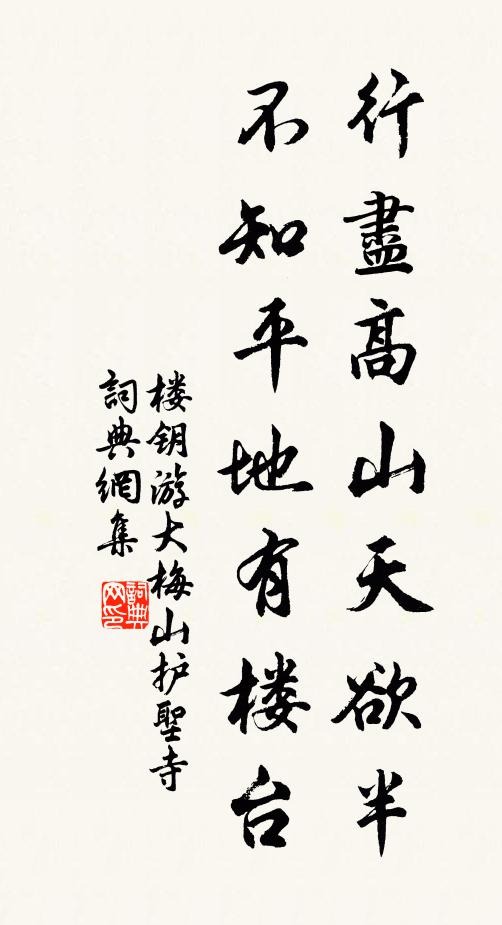 行盡高山天欲半
不知平地有楼台
楼钥游大梅山护聖寺
詞典網集
詞典
网印